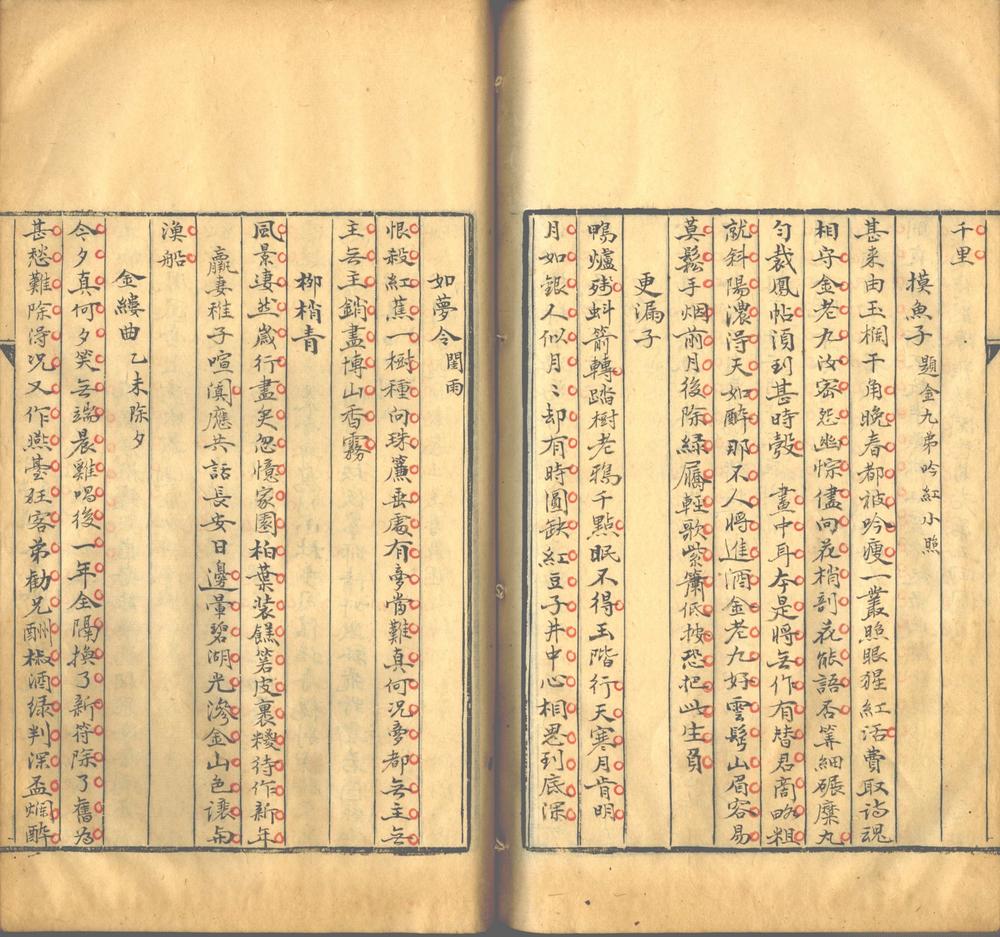 千里
摸魚子 題金九弟吟紅小照
甚来由玉欄干角晚春都被吟瘦一叢照眼猩紅活費取詩魂
相守金老九汝密怨幽悰儘向花梢剖花能語否算細碾糜丸
勻裁鳳帖須到甚時彀 畫中耳本是將無作有替君商略粗
就斜陽濃得天如醉那不人將進酒金老九好雲鬟山眉容易
莫鬆手烟前月後除綠屩輕歌紫簫低按恐把此生負
更漏子
鴨爐殘蚪箭轉踏樹老鴉千點眠不得玉階行天寒月肯明
月如銀人似月〻却有時圓缺紅豆子井中心相思到底深
如夢令 閏雨
恨殺紅蕉一樹種向珠簾垂處有夢當難真何況夢都無主無
主無主銷盡博山香霧
柳梢青
風景凄然歲行盡矣忽憶家園柏葉裝餻箬皮裹糉待作新年
羸妻稚子喧闐應共話長安日邊暈碧湖光滲金山色讓與
漁船
金縷曲 乙未除夕
今夕真何夕笑無端晨雞唱後一年全隔換了新符除了舊為
甚愁難除得况又作燕臺狂客弟勸兄酬椒酒綠判深盃爛醉